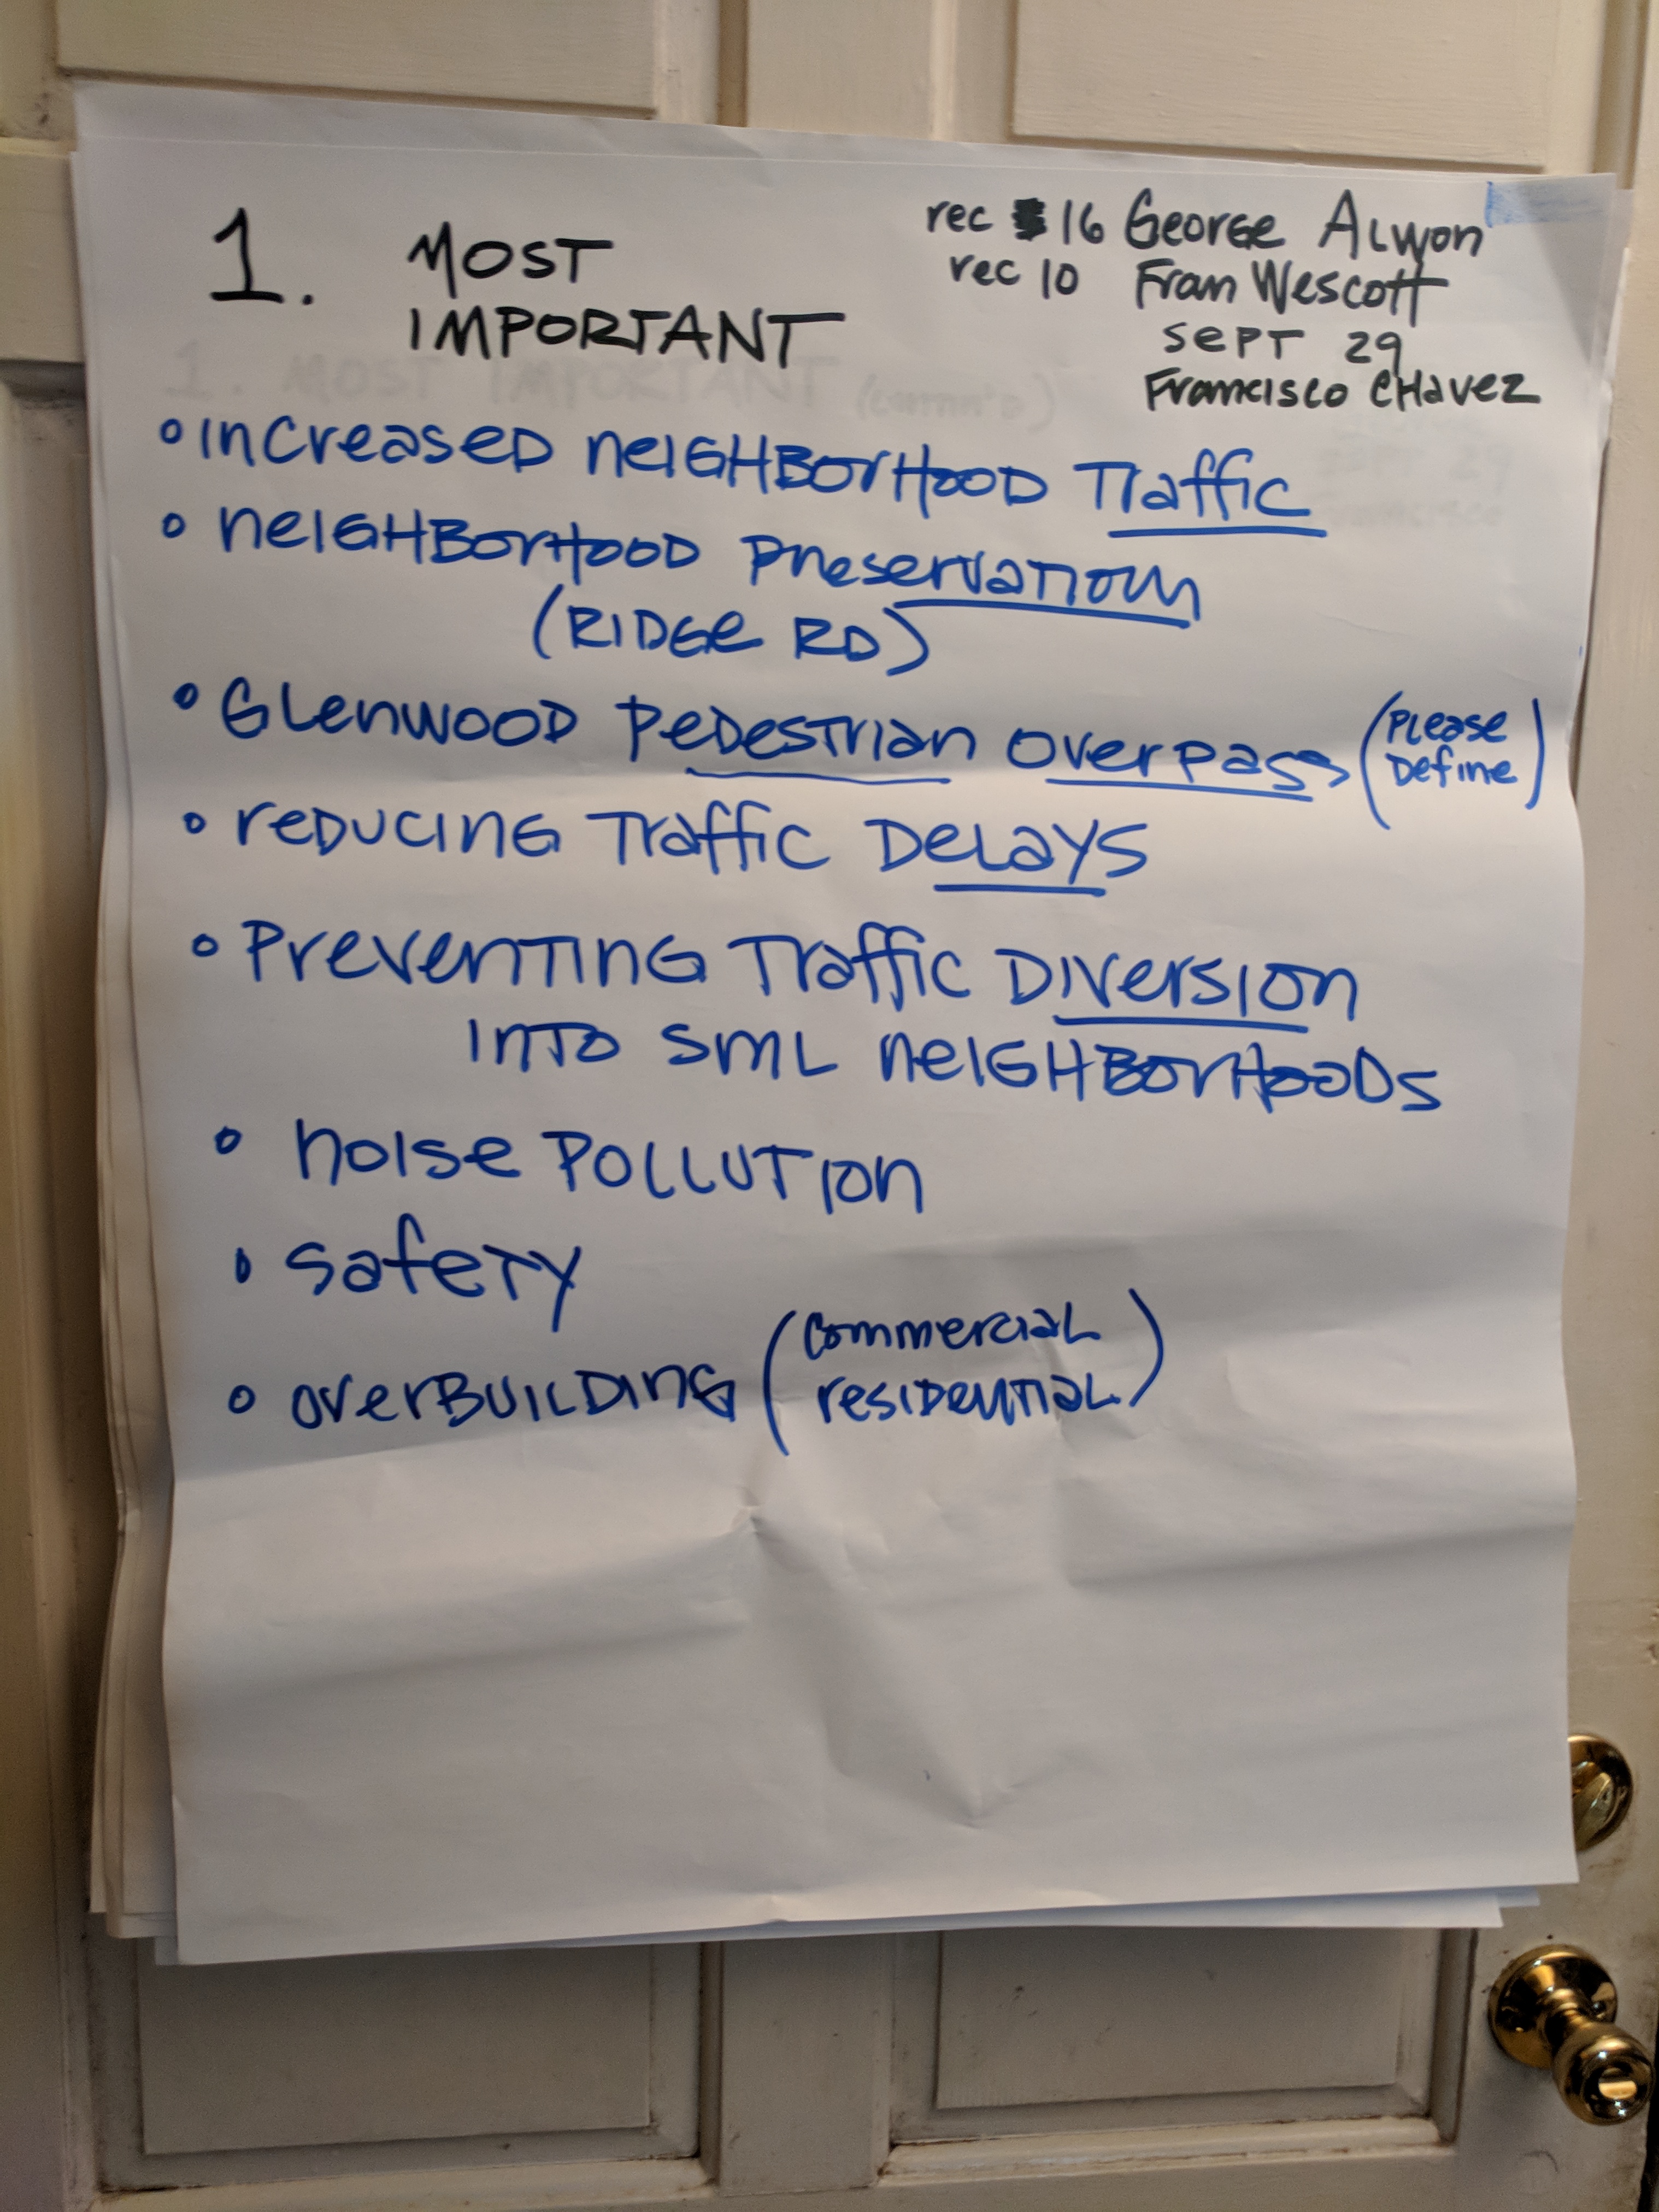 1. MOST
IMPORTANT
rec 16 George Alwon
rec 10 Fran Wescott
Sept 29
Francisco Chavez
1. MOST IMPORTANT
• Increased Neighborhood Traffic
• Neighborhood Preservation
(Ridge Rd)
• Glenwood Pedestrian Overpass (Please
Define)
• reducing Traffic Delays
• Preventing Traffic Diversion
into SML neighborhoods
• noise Pollution
• Safety
• overbuilding (Commercial
residential)